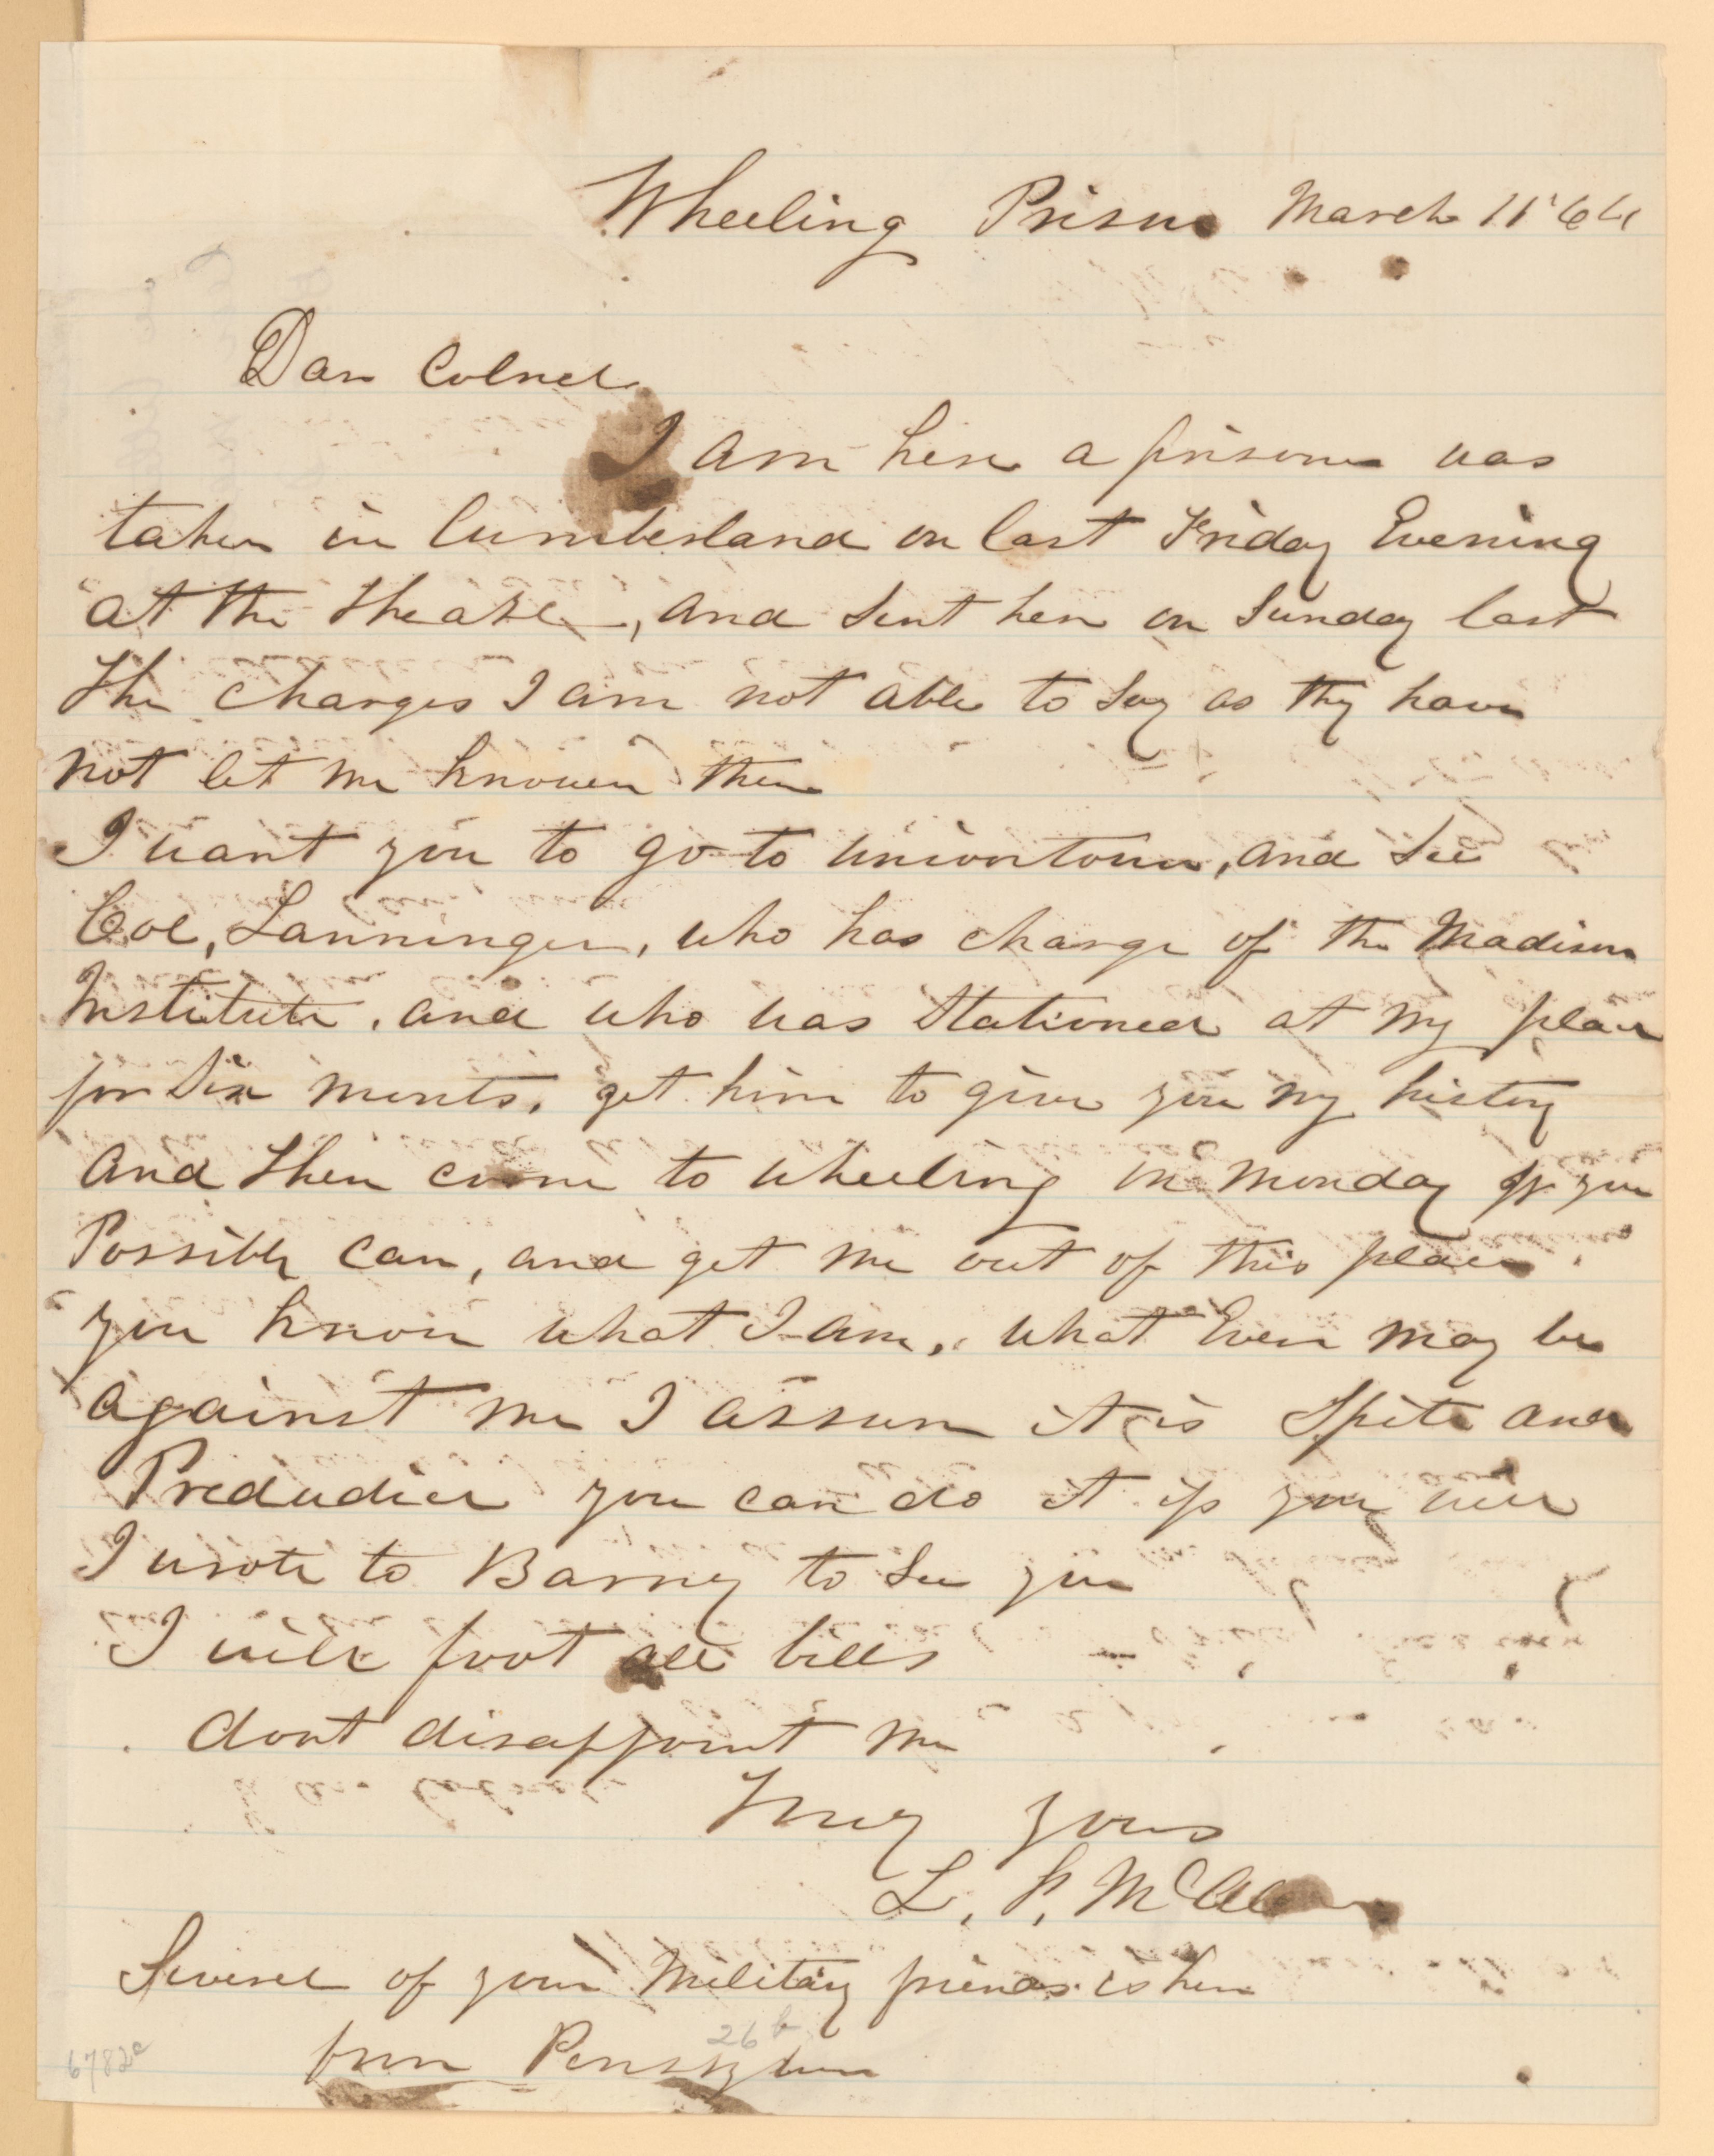 Wheeling Prison March 11 '64
Dear Colnel
I am here a prisoner was
taken in Cumberland on last Friday Evening
at the Theatre, and sent here on Sunday last
The charges I am not able to say as they have
not let me known them
I want you to go to uniontown, and see
Col, Lanninger, who has charge of the Madison
Institute, and who was stationed at my place
for six monts, get him to give you my history
and then come to wheeling on Monday if you
Possibly can, and get me out of this place.
you know what I am, what Ever may be
against me I assure it is Spite and
Predudice you can do it if you will
I wrote to Barney to see you
I will foot all bills
dont disappoint me
Truly yours
L. P.
Several of your Military friends is here
from
26b
6782c